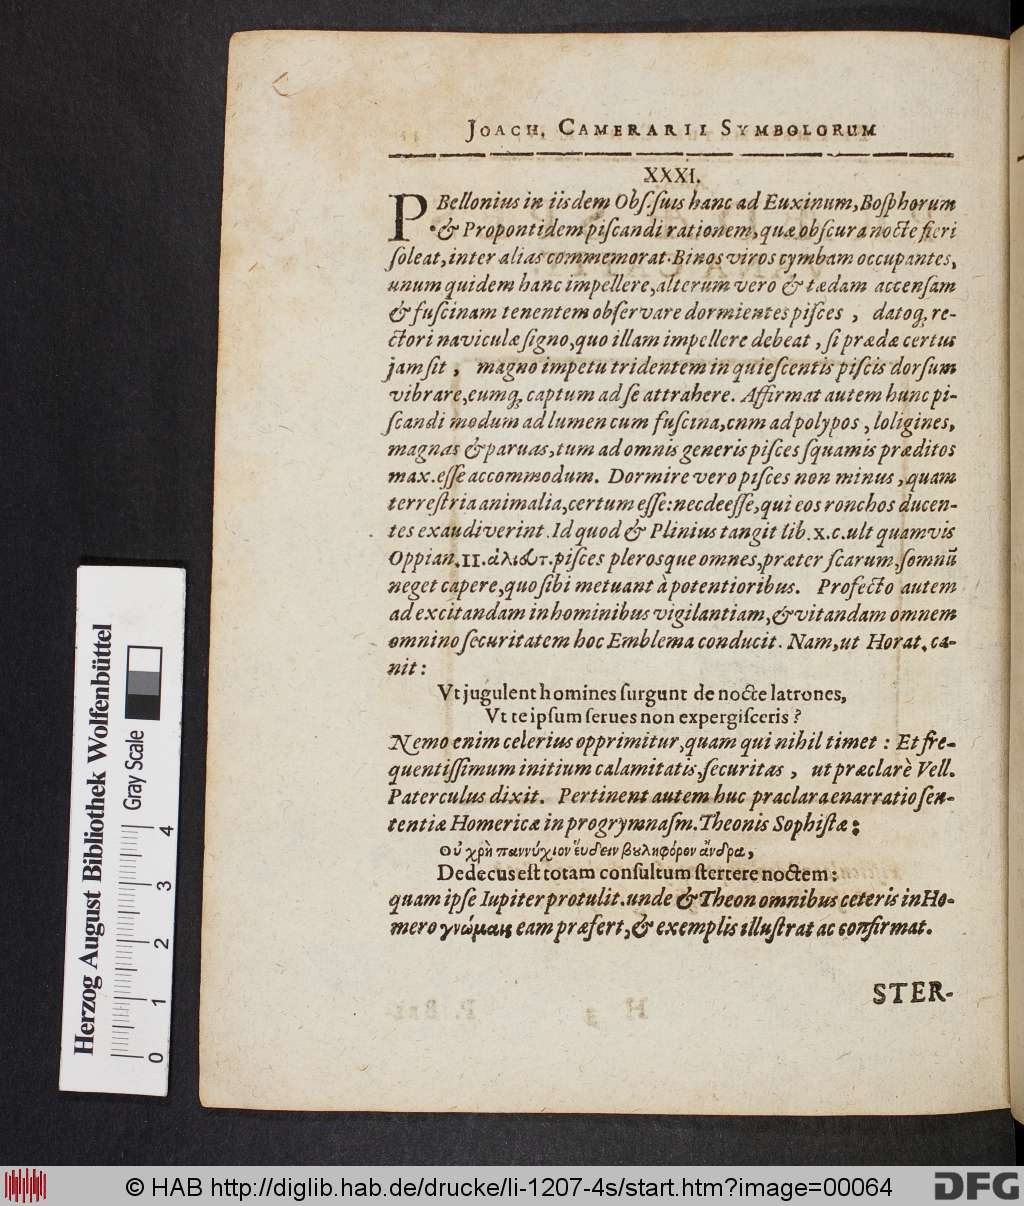 JOACH. CAMERARII SYMBOLORUM
XXXI.
P Bellonius in iisdem Obſ. ſuis hanc ad Euxinum, Boſphorum
. & Propontidem piſcandi rationem, quæ obſcura nocte fieri
ſoleat, inter alias commemorat. Binos viros cymbam occupantes,
unum quidem hanc impellere, alterum vero & tædam accenſam
& fuſcinam tenentem obſervare dormientes piſces, datoq; re-
ctori naviculæ ſigno, quo illam impellere debeat, ſi prædæ certus
jam ſit, magno impetu tridentem in quieſcentis piſcis dorſum
vibrare, eumq; captum ad ſe attrahere. Affirmat autem hunc pi-
ſcandi modum ad lumen cum fuſcina, cnm ad polypos, loligines,
magnas & paruas, tum ad omnis generis piſces ſquamis præditos
max. eſſe accommodum. Dormire vero piſces non minus, quam
terreſtria animalia, certum eſſe: nec deeſſe, qui eos ronchos ducen-
tes exaudiverint. Id quod & Plinius tangit lib. X. c. ult quamvis
Oppian. II. ἁλιευτ. piſces plerosque omnes, præter ſcarum, ſomnū
neget capere, quo ſibi metuant à potentioribus. Profecto autem
ad excitandam in hominibus vigilantiam, & vitandam omnem
omnino ſecuritatem hoc Emblema conducit. Nam, ut Horat. ca-
nit:
Vt jugulent homines ſurgunt de nocte latrones,
Vt te ipſum ſerues non expergiſceris?
Nemo enim celerius opprimitur, quam qui nihil timet: Et fre-
quentiſſimum initium calamitatis, ſecuritas, ut præclarè Vell.
Paterculus dixit. Pertinent autem huc praclara enarratio ſen-
tentiæ Homericæ in progrymnaſm. Theonis Sophiſtæ:
Οὐ χρὴ παννύχιον εὕδειν βȣληφόρον ἄνδρα,
Dedecus eſt totam conſultum ſtertere noctem:
quam ipſe Iupiter protulit. unde & Theon omnibus ceteris in Ho-
mero γνώμαις eam præfert, & exemplis illuſtrat ac confirmat.
STER-
Herzog August Bibliothek Wolfenbüttel
Gray Scale
0 1 2 3 4
© HAB http://diglib.hab.de/drucke/li-1207-4s/start.htm?image=00064
DFG